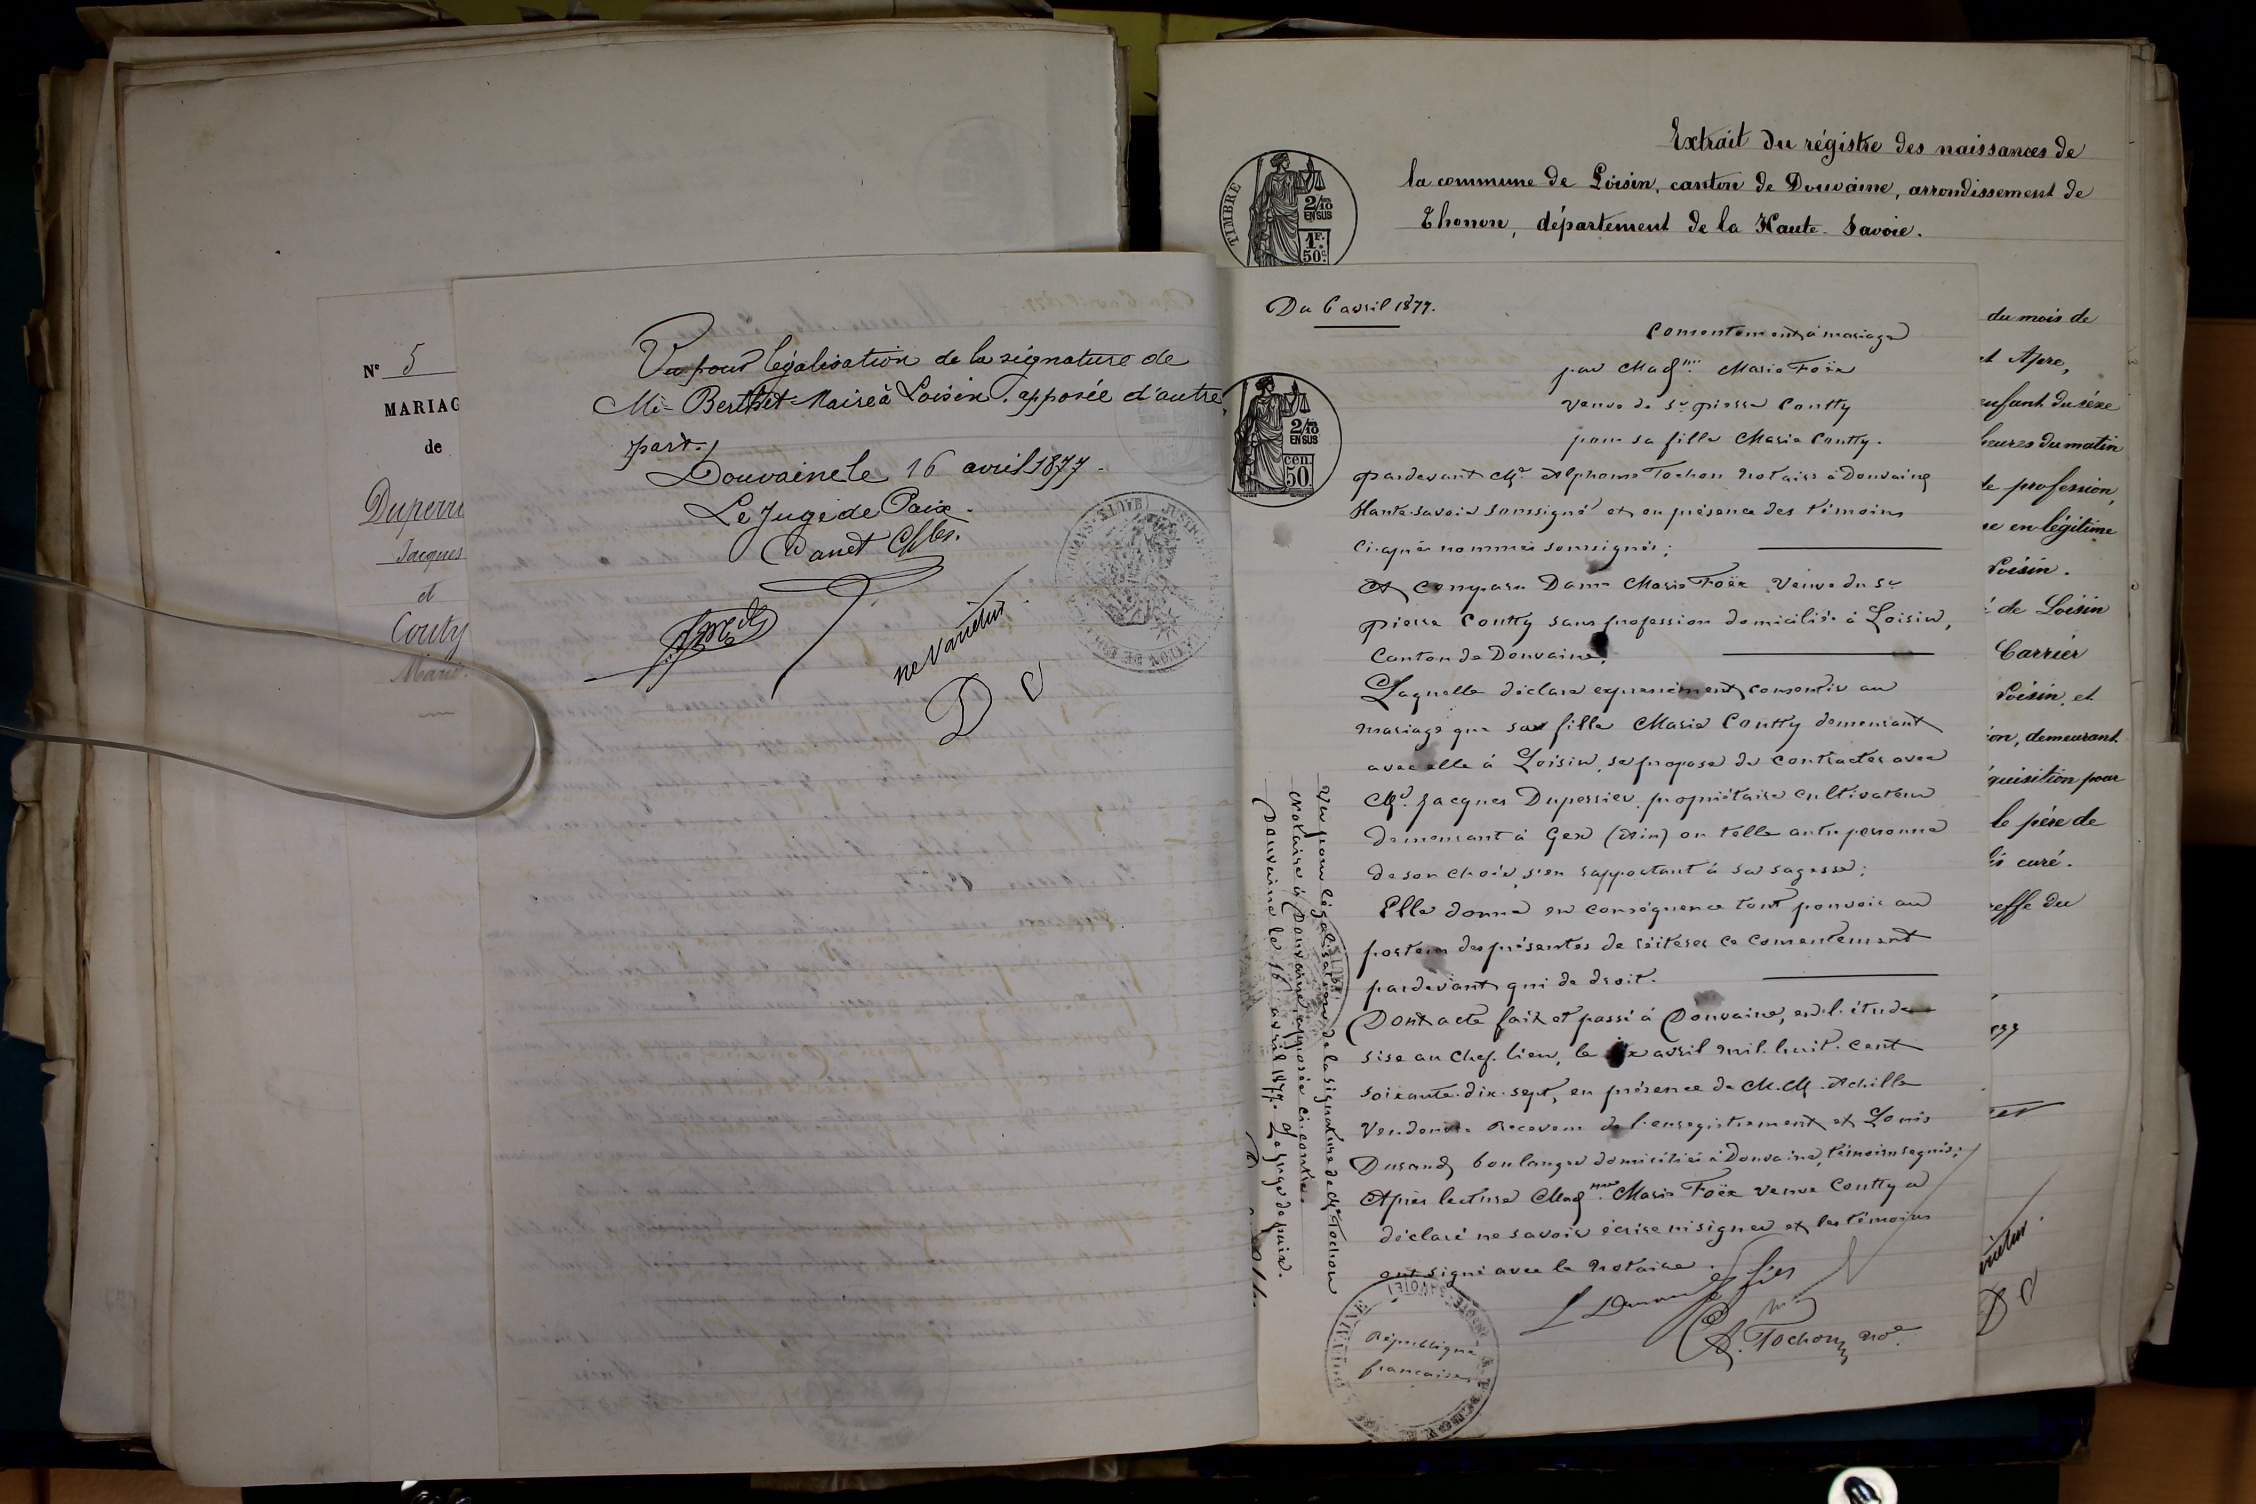 Nº 5
MARIAG
de
Duperri
Jacques
et
Couty
Marie
Vu pour légalisation de la signature de
Me Berthet Maire à Loisin, apposée d'autre
part.
Douvaine le 16 avril 1877.
Le Juge de Paix.
ne varietur
D C
Extrait du régistre des naissances de
la commune de Loisin, canton de Douvaine, arrondissement de
Thonon, département de la Haute-Savoie.
TIMBRE
2/10
EN SUS
1F.
50c
Du 6 avril 1877.
2/10
EN SUS
cen
50
Consentement à mariage
par Madme Marie Foëx
veuve de Sr pierre Coutty
pour sa fille Marie Coutty.
pardevant Me Alphonse Tochon Notaire à Douvaine
Haute-Savoie soussigné et en présence des témoins
ci-après nommés soussignés;
A comparu Dame Marie Foëx veuve du Sr
pierre Coutty sans profession domiciliée à Loisin,
Canton de Douvaine,
Laquelle déclare expressément consentir au
mariage que sa fille Marie Coutty demeurant
avec elle à Loisin, se propose de contracter avec
Mr. Jacques Duperrier propriétaire cultivateur
demeurant à Gex (Ain) ou telle autre personne
de son choix s'en rapportant à sa sagesse;
Elle donne en conséquence tout pouvoir au
porteur des présentes de réiterer ce consentement
pardevant qui de droit.
Dont acte fait et passé à Douvaine, en l'étude
sise au chef-lieu, le avril mil huit cent
soixante-dix-sept, en présence de M.M. Achille
receveur de l'enregistrement et Louis
Durand boulanger domiciliés à Douvaine, témoins requis;
Après lecture Madme Marie Foëx veuve Coutty a
déclaré ne savoir écrire ni signer et les témoins
ont signé avec le Notaire.
A. Tochon no
République
française
Vu pour légalisation de la signature de Me Tochon
Notaire à Douvaine, apposée ci-contre.
Douvaine le 16 avril 1877. Le Juge de paix.
du mois de
et Apre,
enfant du séxe
heures du matin
de profession,
en légitime
Loisin.
de Loisin
Carrier
Loisin, et
ion, demeurant
quisition pour
le père de
curé.
effe du
D C